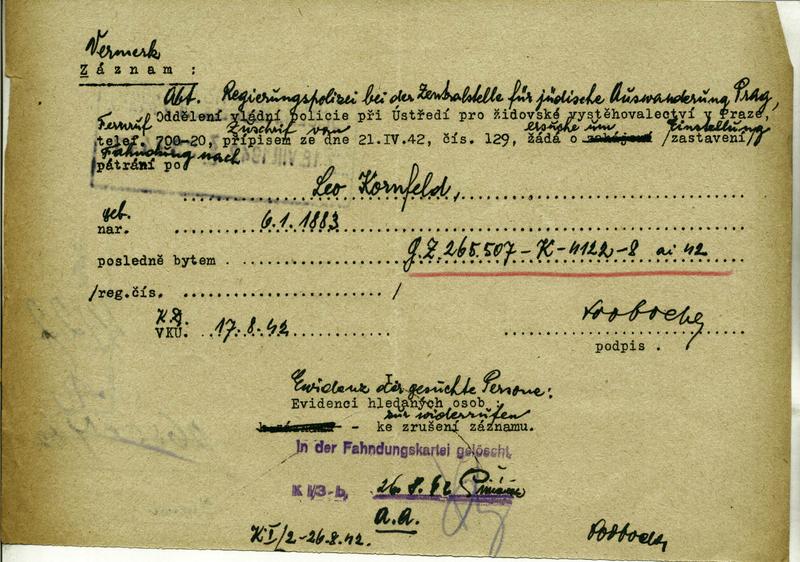 Vermerk
Záznam :
Abt. Regierungspolizei bei der Zentralstelle für jüdische Auswanderung Prag,
Oddělení vládní policie při Ústředí pro židovské vystěhovalectví v Praze,
Fernruf Zuschrift von ersuche um Einstellung
telef. 700-20, přípisem ze dne 21.IV.42, čís. 129, žádá o /zastavení/
Fahndung nach
pátrání po
18 VIII 194
Leo Kornfeld,
geb.
nar. 6.1.1883
posledně bytem G.Z. 265.507 - K - 4122 - 8 ai 42
/reg.čís. /
K.D.
VKÚ. 17.8.42
podpis .
Evidenz der gesuchte Persone:
Evidenci hledaných osob
zur widerrufen
- ke zrušení záznamu.
In der Fahndungskartei gelöscht.
K I/3-b, 26.8.42
A.A.
K I/2-26.8.42.